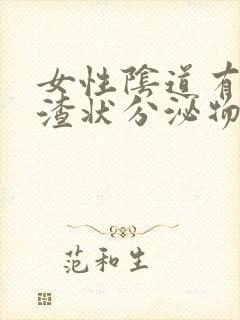 女性陰道有
渣状分泌物
范和生